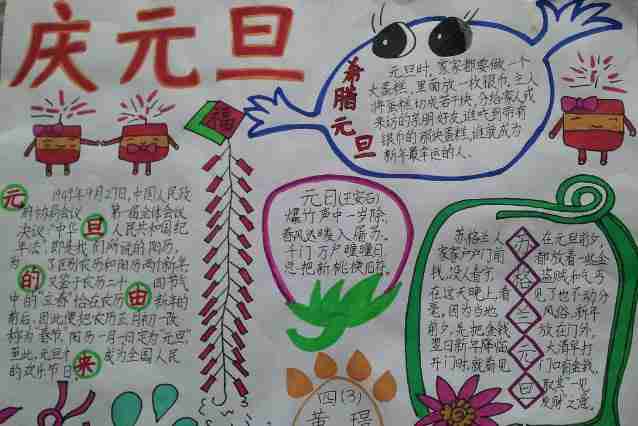 庆元旦
希腊元旦
元旦时,家家都要做一个
大蛋糕,里面放一枚银币,主人
将蛋糕切成若干快,分给家人或
来访的亲朋好友,谁吃到带有
银币的那块蛋糕,谁就成为
新年最幸运的人。
福
元旦的由来
1949年9月27日,中国人民政
治协商会议第一届全体会议
决议“中华人民共和国纪
年法”即是我们所说的阳历,
为了区别农历和阳历两个新年,
又鉴于农历二十四节气
中的“立春”恰在农历新年的
前后,因此便把农历正月初一改
称为“春节”,阳历一月一日定为“元旦”,
至此,元旦才成为全国人民
的欢乐节日。
元日(王安石)
爆竹声中一岁除,
春风送暖入屠苏。
千门万户曈曈日,
总把新桃换旧符。
苏格兰元旦
苏格兰人
家家户户门前
钱,没人看守,
在这天晚上,看
毫,因为当地
前夕,先把金钱
翌日新年降临
开门时,就看见
在元旦前夕,
都放着一些金
盗贼和乞丐
见了也不动分
风俗,新年
放在门外,
大清早打
门口前金钱,
取其“一见
发财”之意。
四(3)
黄